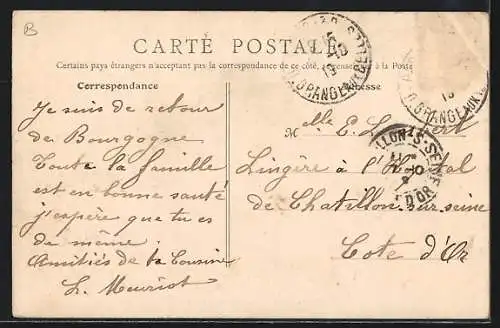 B
CARTE POSTALE
Certains pays étrangers n'acceptant pas la correspondance de ce côté, à la Poste
Correspondance
Je suis de retour
de Bourgogne
Toute la famille
est en bonne santé
j'espère que tu es
de même
Amitiés de ta Cousine
L. Meuriot
Melle E.
Lingère à
de Chatillon sur seine
Cote d'Or
R. GRANGE AUX BELLES
R. GRANGE AUX
D'OR